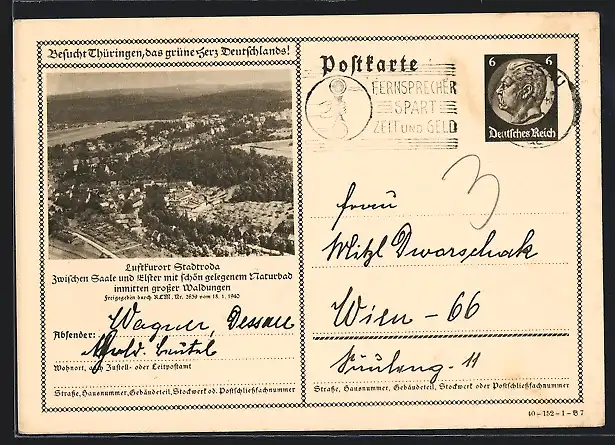 Besucht Thüringen, das grüne Herz Deutschlands!
Luftkurort Stadtroda
Zwischen Saale und Elster mit schön gelegenem Naturbad
inmitten großer Waldungen
Freigegeben durch RLM. Nr. 2636 vom 18. 1. 1940
Absender: Wagner, Dessau
Wohnort, auch Zustell- oder Leitpostamt
Straße, Hausnummer, Gebäudeteil, Stockwerk od. Postschließfachnummer
Postkarte
FERNSPRECHER
SPART
ZEIT UND GELD
6 6
Deutsches Reich
3
Frau
Mitzl Dworschak
Wien - 66
11
Straße, Hausnummer, Gebäudeteil, Stockwerk oder Postschließfachnummer
40-152-1-B7